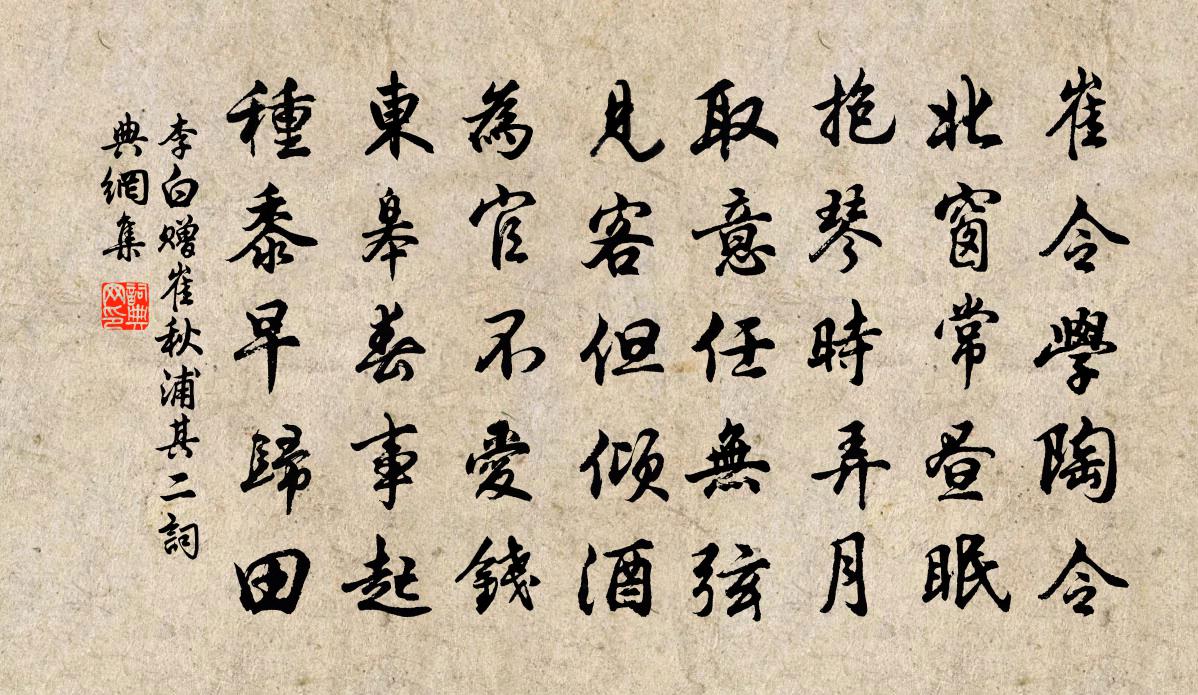 崔令學陶令
北窗常晝眠
抱琴時弄月
取意任無弦
見客但傾酒
為官不愛錢
東皋春事起
種黍早歸田
李白贈崔秋浦其二詞
典網集
詞典
网印